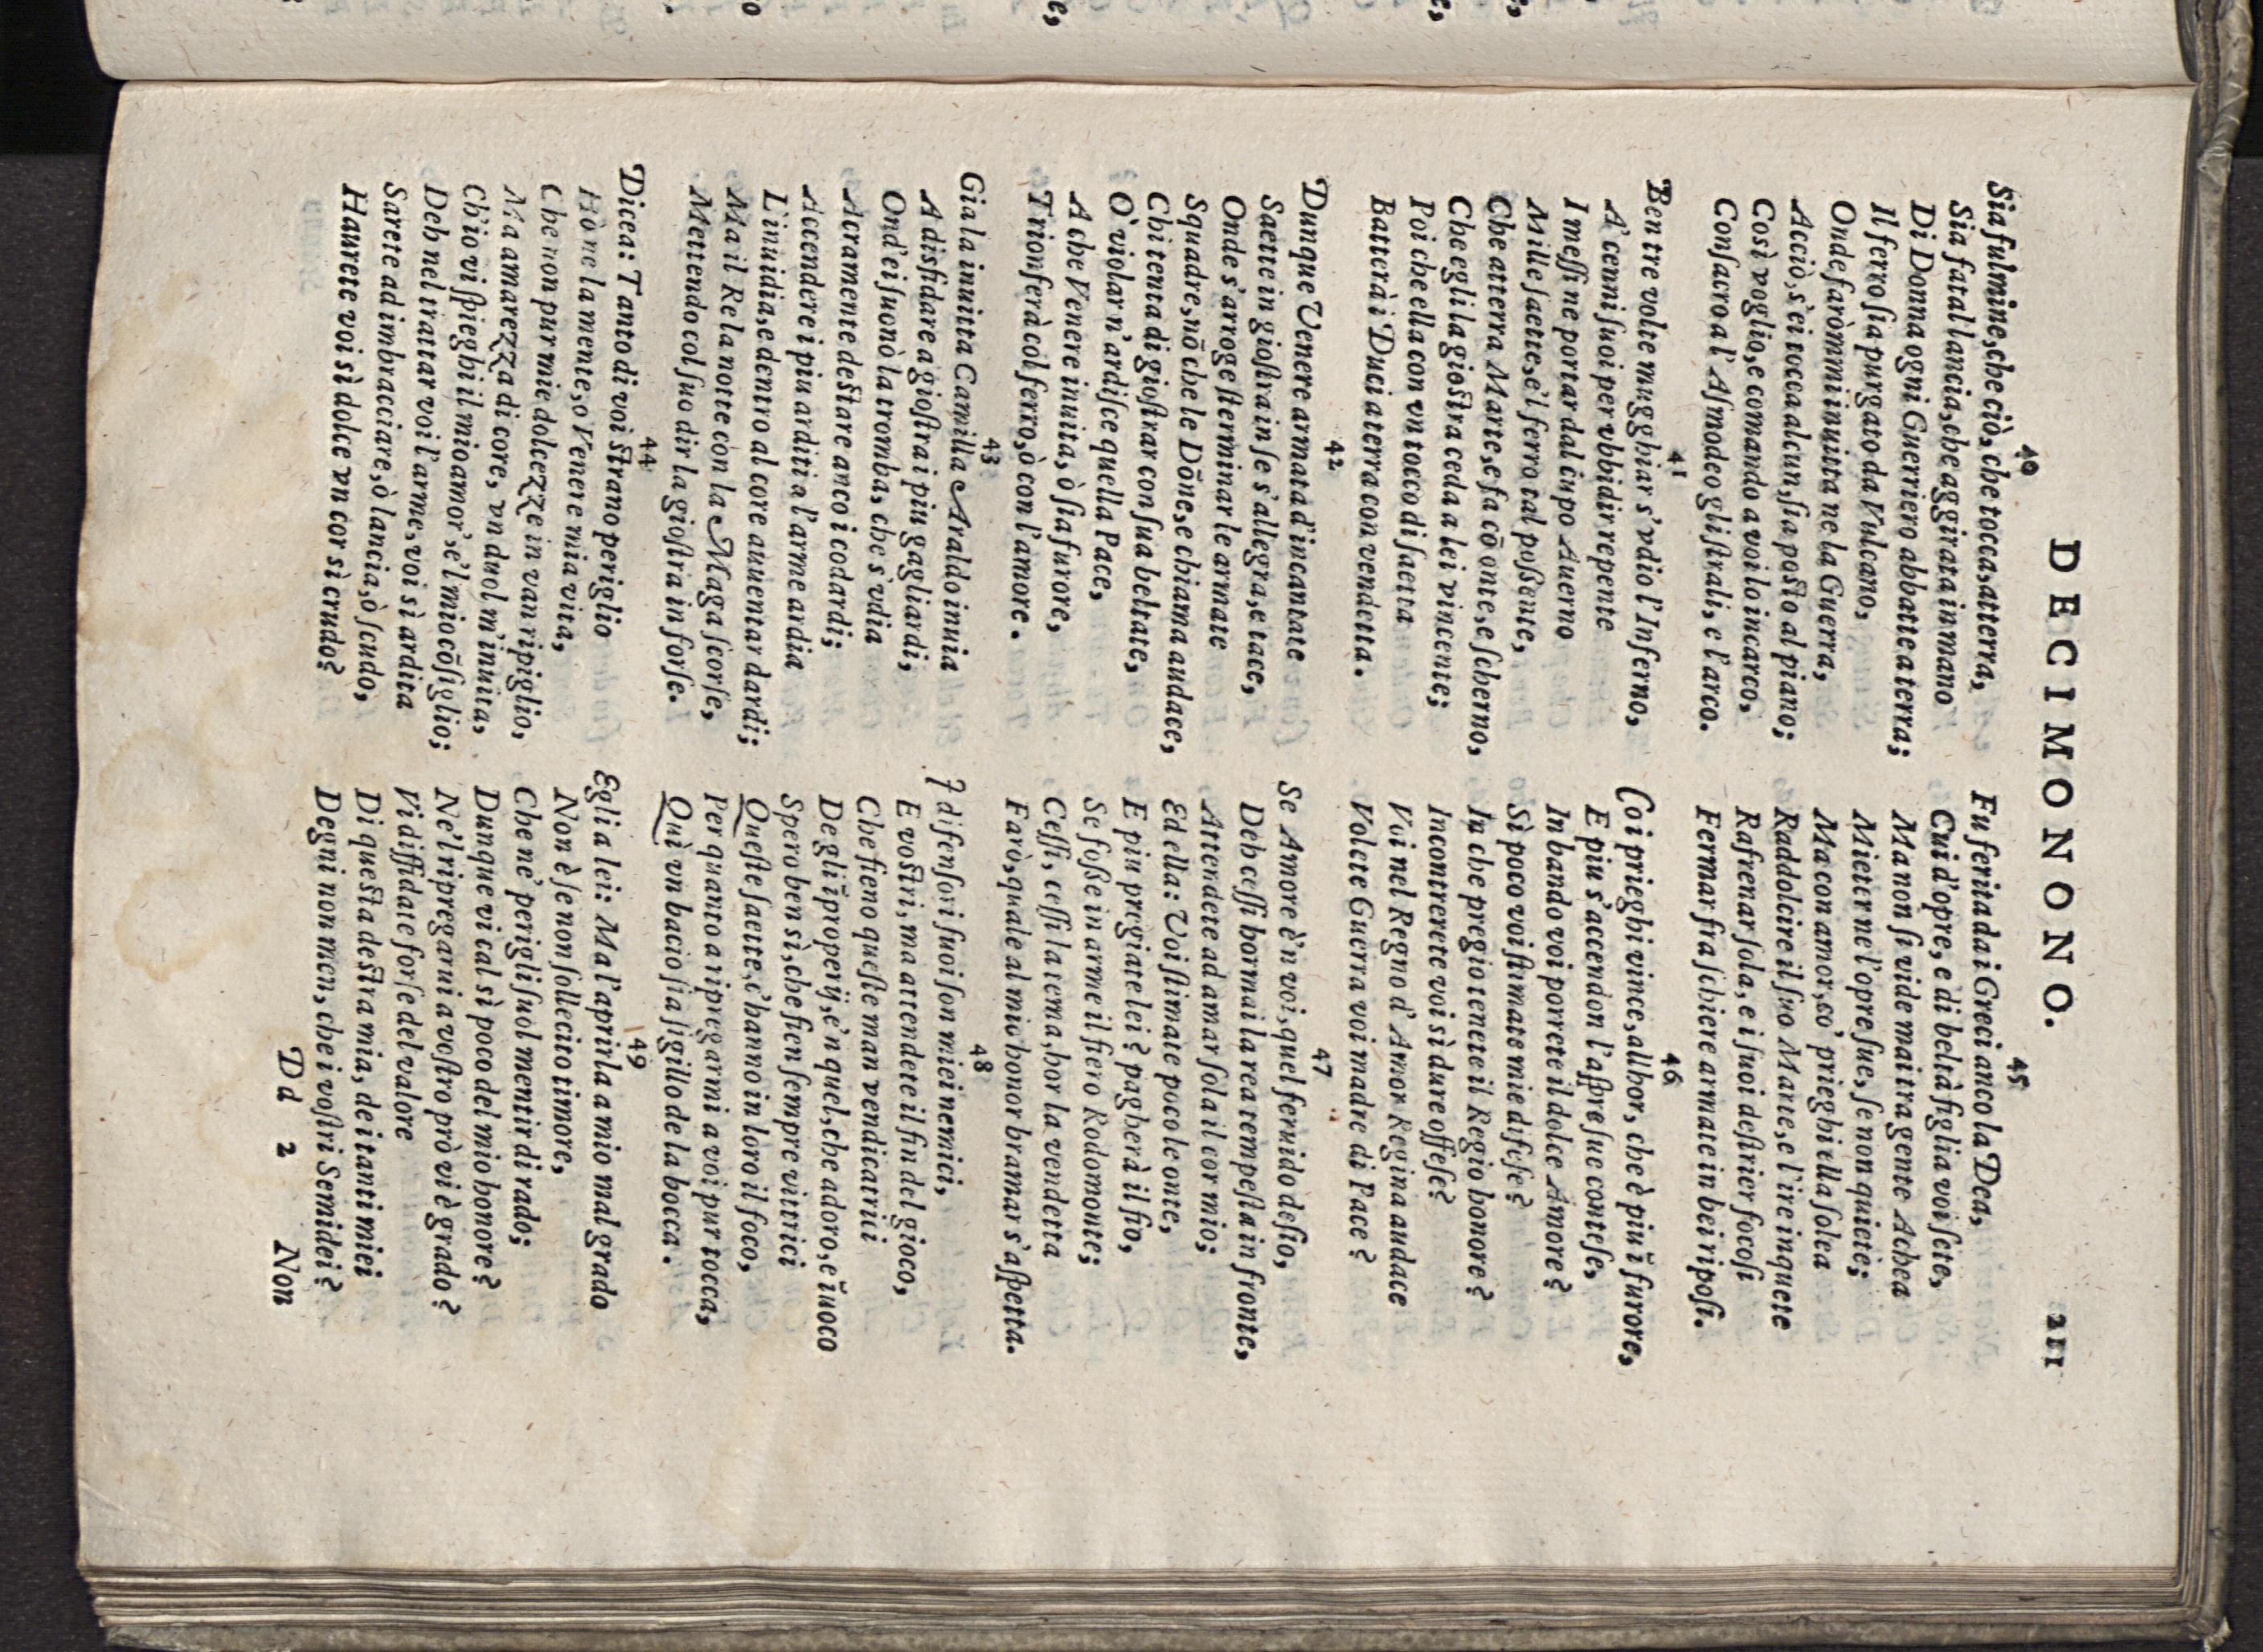 DECIMONONO. 211
40
Sia fulmine, che ciò, che tocca, atterra,
Sia fatal lancia, che aggirata in mano
Di Donna ogni Guerriero abbatte a terra;
Il ferro sia purgato da Vulcano,
Onde faròmmi inuitta ne la Guerra,
Acciò, s'ei tocca alcun, sia posto al piano;
Così voglio, e comando a voi lo incarco,
Consacro a l'Asmodeo gli strali, e l'arco.
41
Ben tre volte mugghiar s'vdio l'Inferno,
A' cenni suoi per vbbidir repente
I messi ne portar dal cupo Auerno
Mille saette, e'l ferro tal possente,
Che atterra Marte, e fa cō onte, e scherno,
Che egli la giostra ceda a lei vincente;
Poi che ella con vn tocco di saetta
Batterà i Duci a terra con vendetta.
42
Dunque Venere armata d'incantate
Saette in giostra in se s'allegra, e tace,
Onde s'arroge sterminar le armate
Squadre, nō che le Dōne, e chiama audace,
Chi tenta di giostrar con sua beltate,
O' violar n'ardisce quella Pace,
A che Venere inuita, ò sia furore,
Trionferà col ferro, ò con l'amore.
43
Gia la inuitta Camilla Araldo inuia
A disfidare a giostra i piu gagliardi,
Ond'ei suonò la tromba, che s'vdia
Acramente destare anco i codardi;
Accendere i piu arditi a l'arme ardia
L'inuidia, e dentro al core auuentar dardi;
Ma il Re la notte con la Maga scorse,
Mettendo col suo dir la giostra in forse.
44
Dicea: Tanto di voi strano periglio
Hò ne la mente, o Venere mia vita,
Che non pur mie dolcezze in van ripiglio,
Ma amarezza di core, vn duol m'inuita,
Ch'io vi spieghi il mio amor', e'l mio cōsiglio;
Deh nel trattar voi l'arme, voi sì ardita
Sarete ad imbracciare, ò lancia, ò scudo,
Haurete voi sì dolce vn cor sì crudo?
45
Fu ferita da i Greci anco la Dea,
Cui d'opre, e di beltà figlia voi sete,
Ma non si vide mai tra gente Achea
Mieter ne l'opre sue, se non quiete;
Ma con amor, co' prieghi ella solea
Raddolcire il suo Marte, e l'ire inquete
Rafrenar sola, e i suoi destrier focosi
Fermar fra schiere armate in bei riposi.
46
Coi prieghi vince, allhor, che è piu ĩ furore,
E piu s'accendon l'aspre sue contese,
In bando voi porrete il dolce Amore?
Sì poco voi stimate mie difese?
In che pregio tenete il Regio honore?
Incontrerete voi sì dure offese?
Voi nel Regno d'Amor Regina audace
Volete Guerra voi madre di Pace?
47
Se Amore è'n voi, quel feruido desio,
Deh cessi hormai la rea tempesta in fronte,
Attendete ad amar sola il cor mio;
Ed ella: Voi stimate poco le onte,
E piu pregiate lei? pagherà il fio,
Se fosse in arme il fiero Rodomonte;
Cessi, cessi la tema, hor la vendetta
Farò, quale al mio honor bramar s'aspetta.
48
I difensori suoi son miei nemici,
E vostri, ma attendete il fin del gioco,
Che fieno queste man vendicatrici
De gli ĩproperij, e'n quel, che adoro, e ĩuoco
Spero ben sì, che fien sempre vittrici
Queste saette, c'hanno in loro il foco,
Per quanto a ripregarmi a voi pur tocca,
Quì vn bacio sia sigillo de la bocca.
49
Egli a lei: Ma l'aprirla a mio mal grado
Non è se non sollecito timore,
Che ne' perigli suol mentir di rado;
Dunque vi cal sì poco del mio honore?
Ne'l ripregarui a vostro prò vi è grado?
Vi diffidate forse del valore
Di questa destra mia, de i tanti miei
Degni non men, che i vostri Semidei?
Dd 2 Non